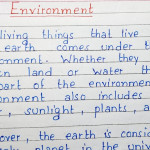 Environment
living things that live
earth comes under t
onment. Whether they
n land or water th
part of the environmen
onment also includes
, sunlight, plants, a
over, the earth is consid
planet in the univ